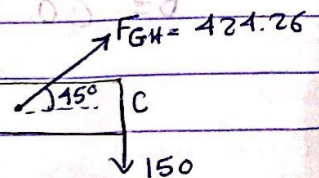 F_GH = 424.26
45°
C
150